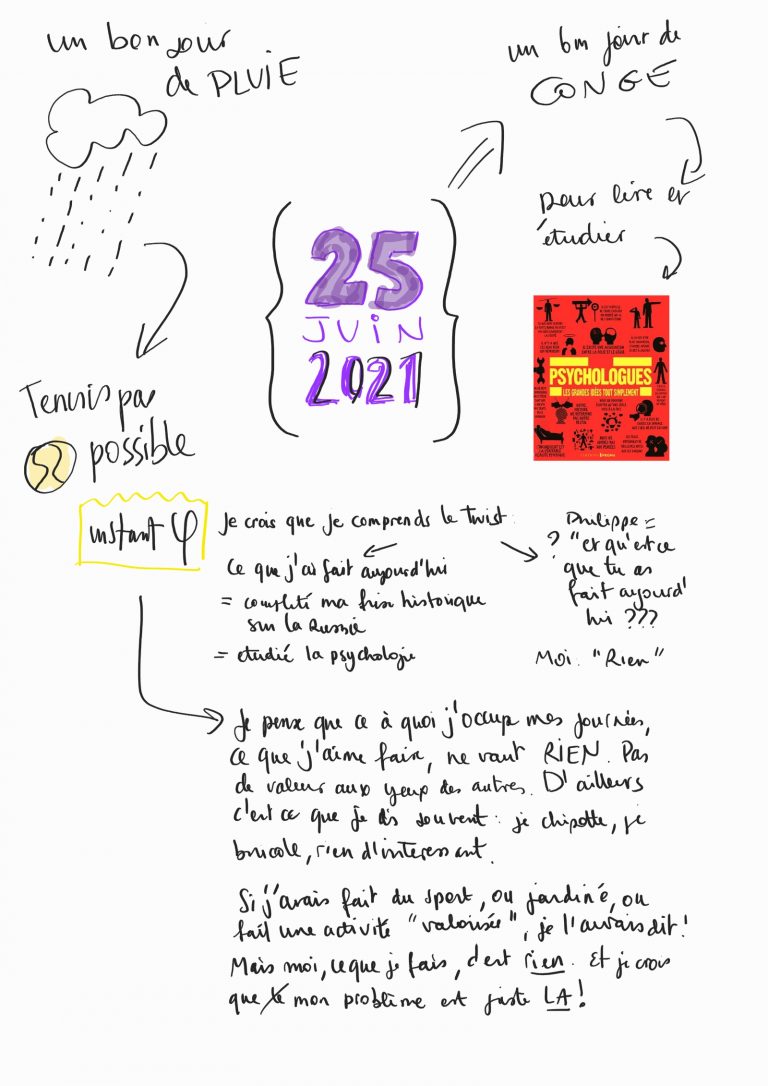 un bon jour
de PLUIE
un bon jour de
CONGÉ
pour lire et
étudier
25
JUIN
2021
PSYCHOLOGUES
LES GRANDES IDÉES TOUT SIMPLEMENT
Tennis pas
possible
instant φ
Je crois que je comprends le twist.
Ce que j'ai fait aujourd'hui
= complété ma frise historique
sur la Russie
= étudié la psychologie
Philippe =
? "et qu'est ce
que tu as
fait aujourd'
hui ???
Moi. "Rien"
Je pense que ce à quoi j'occupe mes journées,
ce que j'aime faire, ne vaut RIEN. Pas
de valeur aux yeux des autres. D'ailleurs
c'est ce que je dis souvent : je chipotte, je
bricole, rien d'intéressant.
Si j'avais fait du sport, ou jardiné, ou
fait une activité "valorisée", je l'aurais dit!
Mais moi, ce que je fais, c'est rien. Et je crois
que mon problème est juste LA!